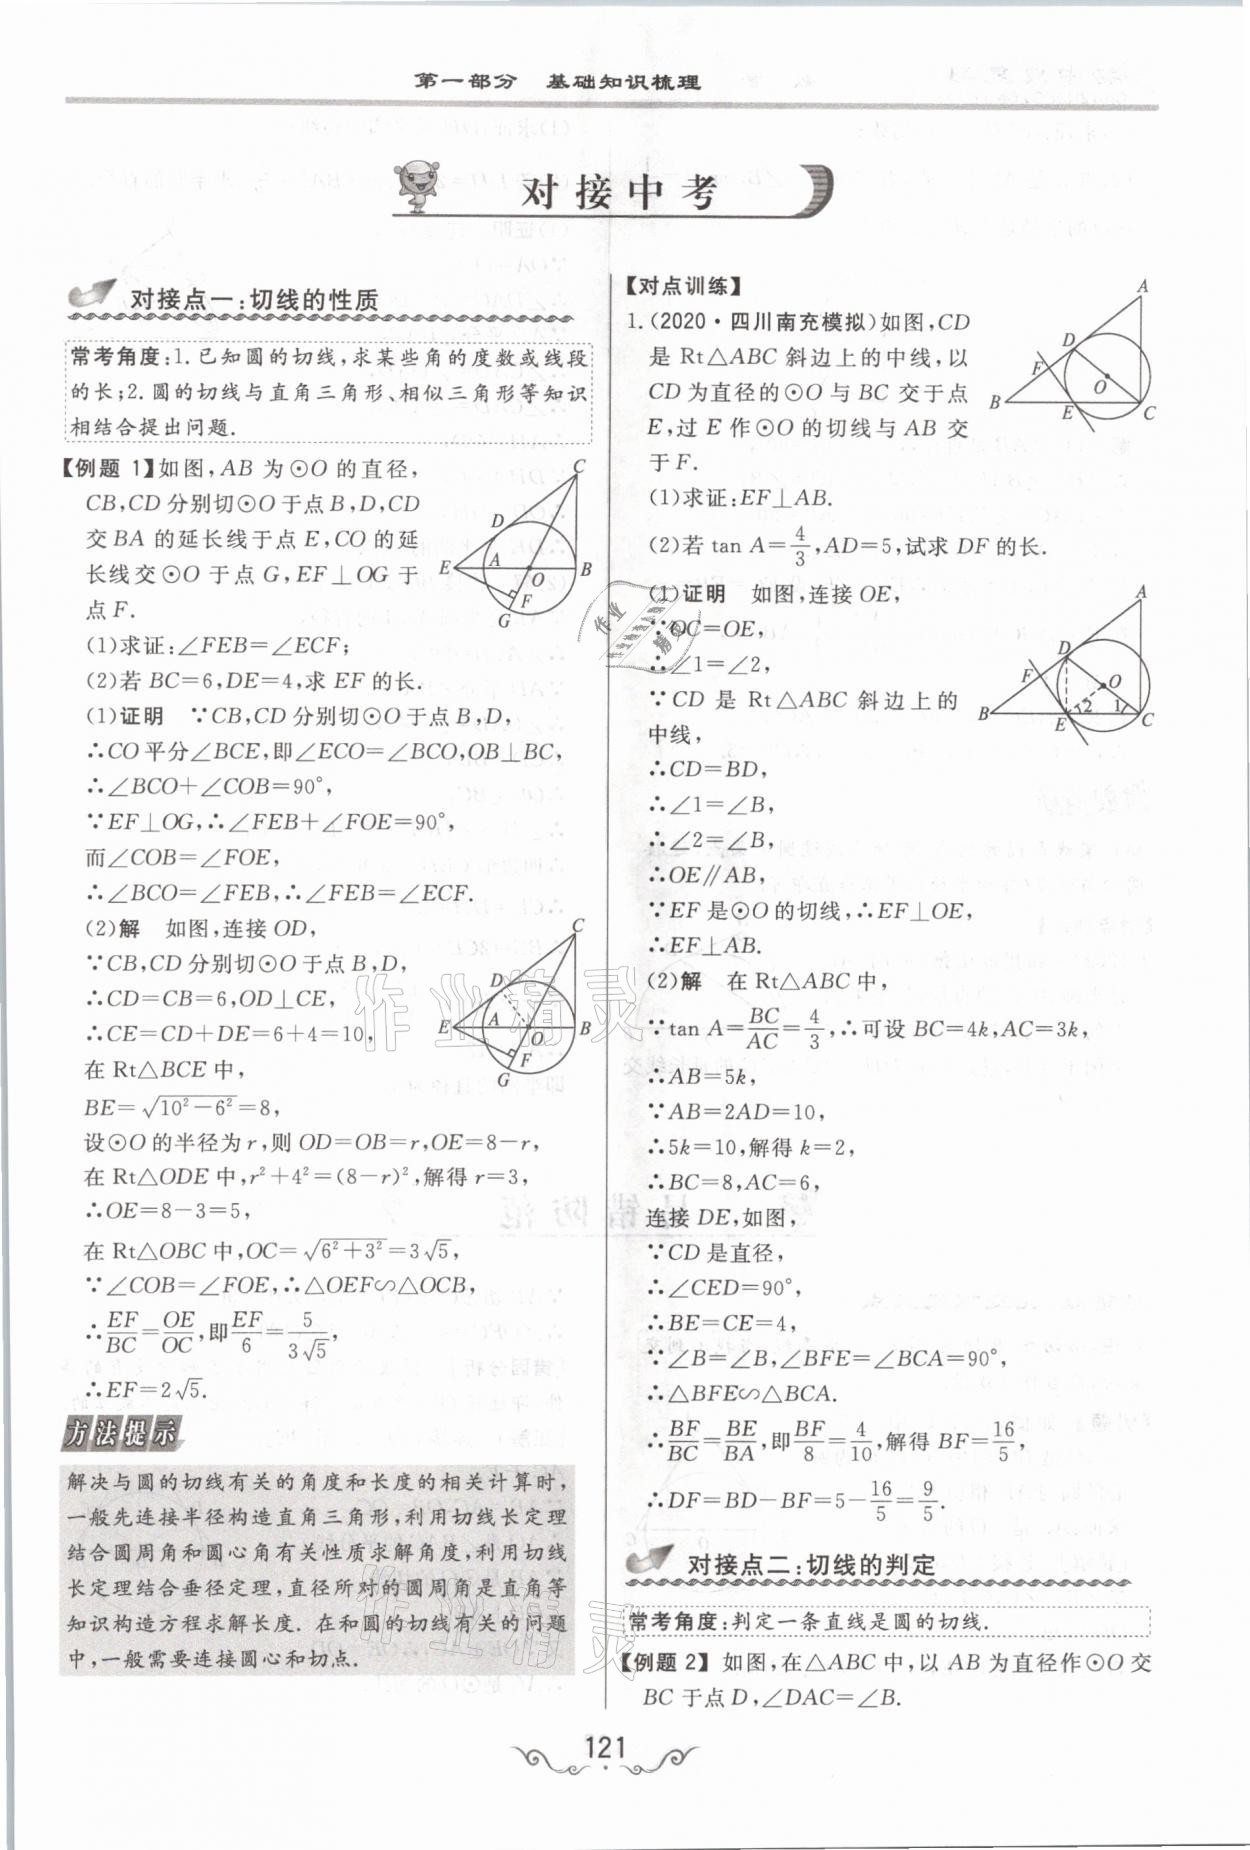 第一部分 基础知识梳理
对接中考
对接点一:切线的性质
常考角度:1.已知圆的切线,求某些角的度数或线段
的长;2.圆的切线与直角三角形、相似三角形等知识
相结合提出问题.
【例题 1】如图,AB 为⊙O 的直径,
CB,CD 分别切⊙O 于点 B,D,CD
交 BA 的延长线于点 E,CO 的延
长线交⊙O 于点 G,EF⊥OG 于
点 F.
(1)求证:∠FEB=∠ECF;
(2)若 BC=6,DE=4,求 EF 的长.
(1)证明 ∵CB,CD 分别切⊙O 于点 B,D,
∴CO 平分∠BCE,即∠ECO=∠BCO,OB⊥BC,
∴∠BCO+∠COB=90°,
∵EF⊥OG,∴∠FEB+∠FOE=90°,
而∠COB=∠FOE,
∴∠BCO=∠FEB,∴∠FEB=∠ECF.
(2)解 如图,连接 OD,
∵CB,CD 分别切⊙O 于点 B,D,
∴CD=CB=6,OD⊥CE,
∴CE=CD+DE=6+4=10,
在 Rt△BCE 中,
BE=√(10²−6²)=8,
设⊙O 的半径为 r,则 OD=OB=r,OE=8−r,
在 Rt△ODE 中,r²+4²=(8−r)²,解得 r=3,
∴OE=8−3=5,
在 Rt△OBC 中,OC=√(6²+3²)=3√5,
∵∠COB=∠FOE,∴△OEF∽△OCB,
∴EF/BC=OE/OC,即EF/6=5/(3√5),
∴EF=2√5.
方法提示
解决与圆的切线有关的角度和长度的相关计算时,
一般先连接半径构造直角三角形,利用切线长定理
结合圆周角和圆心角有关性质求解角度,利用切线
长定理结合垂径定理,直径所对的圆周角是直角等
知识构造方程求解长度.在和圆的切线有关的问题
中,一般需要连接圆心和切点.
【对点训练】
1.(2020·四川南充模拟)如图,CD
是 Rt△ABC 斜边上的中线,以
CD 为直径的⊙O 与 BC 交于点
E,过 E 作⊙O 的切线与 AB 交
于 F.
(1)求证:EF⊥AB.
(2)若 tan A=4/3,AD=5,试求 DF 的长.
(1)证明 如图,连接 OE,
∵OC=OE,
∴∠1=∠2,
∵CD 是 Rt△ABC 斜边上的
中线,
∴CD=BD,
∴∠1=∠B,
∴∠2=∠B,
∴OE∥AB,
∵EF 是⊙O 的切线,∴EF⊥OE,
∴EF⊥AB.
(2)解 在 Rt△ABC 中,
∵tan A=BC/AC=4/3,∴可设 BC=4k,AC=3k,
∴AB=5k,
∵AB=2AD=10,
∴5k=10,解得 k=2,
∴BC=8,AC=6,
连接 DE,如图,
∵CD 是直径,
∴∠CED=90°,
∴BE=CE=4,
∵∠B=∠B,∠BFE=∠BCA=90°,
∴△BFE∽△BCA.
∴BF/BC=BE/BA,即BF/8=4/10,解得 BF=16/5,
∴DF=BD−BF=5−16/5=9/5.
对接点二:切线的判定
常考角度:判定一条直线是圆的切线.
【例题 2】 如图,在△ABC 中,以 AB 为直径作⊙O 交
BC 于点 D,∠DAC=∠B.
121